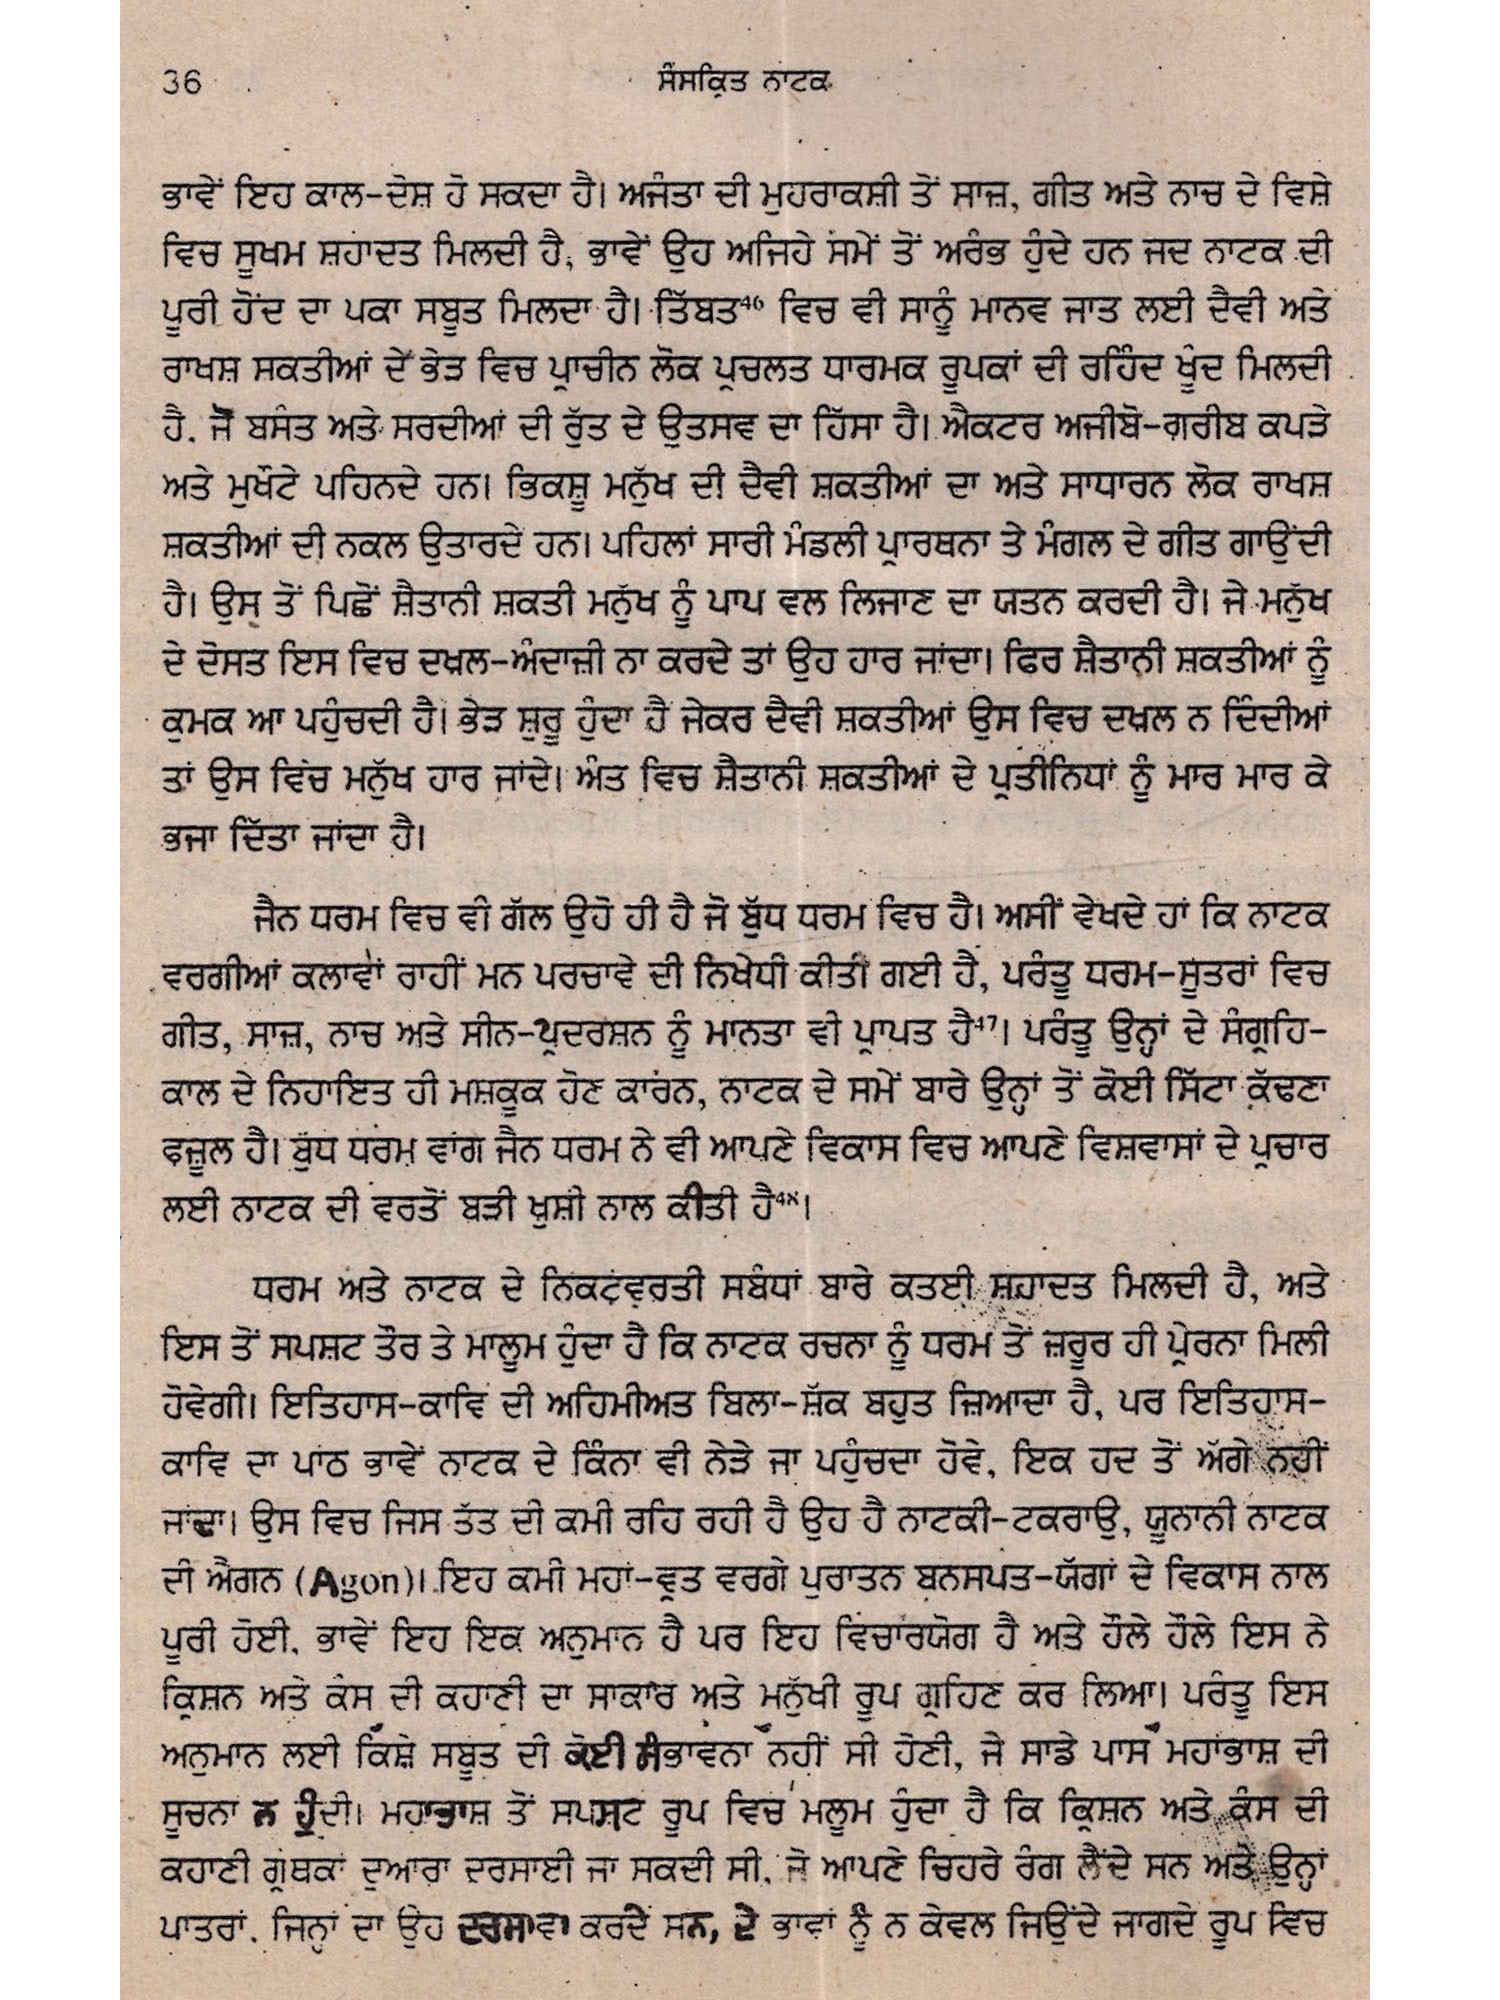 36
ਸੰਸਕ੍ਰਿਤ ਨਾਟਕ
ਭਾਵੇਂ ਇਹ ਕਾਲ-ਦੋਸ਼ ਹੋ ਸਕਦਾ ਹੈ। ਅਜੰਤਾ ਦੀ ਮੁਹਰਾਕਸ਼ੀ ਤੋਂ ਸਾਜ਼, ਗੀਤ ਅਤੇ ਨਾਚ ਦੇ ਵਿਸ਼ੇ
ਵਿਚ ਸੂਖਮ ਸ਼ਹਾਦਤ ਮਿਲਦੀ ਹੈ, ਭਾਵੇਂ ਉਹ ਅਜਿਹੇ ਸਮੇਂ ਤੋਂ ਅਰੰਭ ਹੁੰਦੇ ਹਨ ਜਦ ਨਾਟਕ ਦੀ
ਪੂਰੀ ਹੋਂਦ ਦਾ ਪਕਾ ਸਬੂਤ ਮਿਲਦਾ ਹੈ। ਤਿੱਬਤ⁴⁶ ਵਿਚ ਵੀ ਸਾਨੂੰ ਮਾਨਵ ਜਾਤ ਲਈ ਦੈਵੀ ਅਤੇ
ਰਾਖਸ਼ ਸਕਤੀਆਂ ਦੇ ਭੇੜ ਵਿਚ ਪ੍ਰਾਚੀਨ ਲੋਕ ਪ੍ਰਚਲਤ ਧਾਰਮਕ ਰੂਪਕਾਂ ਦੀ ਰਹਿੰਦ ਖੂੰਦ ਮਿਲਦੀ
ਹੈ, ਜੋ ਬਸੰਤ ਅਤੇ ਸਰਦੀਆਂ ਦੀ ਰੁੱਤ ਦੇ ਉਤਸਵ ਦਾ ਹਿੱਸਾ ਹੈ। ਐਕਟਰ ਅਜੀਬੋ-ਗ਼ਰੀਬ ਕਪੜੇ
ਅਤੇ ਮੁਖੌਟੇ ਪਹਿਨਦੇ ਹਨ। ਭਿਕਸ਼ੂ ਮਨੁੱਖ ਦੀ ਦੈਵੀ ਸ਼ਕਤੀਆਂ ਦਾ ਅਤੇ ਸਾਧਾਰਨ ਲੋਕ ਰਾਖਸ਼
ਸ਼ਕਤੀਆਂ ਦੀ ਨਕਲ ਉਤਾਰਦੇ ਹਨ। ਪਹਿਲਾਂ ਸਾਰੀ ਮੰਡਲੀ ਪ੍ਰਾਰਥਨਾ ਤੇ ਮੰਗਲ ਦੇ ਗੀਤ ਗਾਉਂਦੀ
ਹੈ। ਉਸ ਤੋਂ ਪਿਛੋਂ ਸ਼ੈਤਾਨੀ ਸ਼ਕਤੀ ਮਨੁੱਖ ਨੂੰ ਪਾਪ ਵਲ ਲਿਜਾਣ ਦਾ ਯਤਨ ਕਰਦੀ ਹੈ। ਜੇ ਮਨੁੱਖ
ਦੇ ਦੋਸਤ ਇਸ ਵਿਚ ਦਖ਼ਲ-ਅੰਦਾਜ਼ੀ ਨਾ ਕਰਦੇ ਤਾਂ ਉਹ ਹਾਰ ਜਾਂਦਾ। ਫਿਰ ਸ਼ੈਤਾਨੀ ਸ਼ਕਤੀਆਂ ਨੂੰ
ਕੁਮਕ ਆ ਪਹੁੰਚਦੀ ਹੈ। ਭੇੜ ਸ਼ੁਰੂ ਹੁੰਦਾ ਹੈ ਜੇਕਰ ਦੈਵੀ ਸ਼ਕਤੀਆਂ ਉਸ ਵਿਚ ਦਖ਼ਲ ਨ ਦਿੰਦੀਆਂ
ਤਾਂ ਉਸ ਵਿਚ ਮਨੁੱਖ ਹਾਰ ਜਾਂਦੇ। ਅੰਤ ਵਿਚ ਸ਼ੈਤਾਨੀ ਸ਼ਕਤੀਆਂ ਦੇ ਪ੍ਰਤੀਨਿਧਾਂ ਨੂੰ ਮਾਰ ਮਾਰ ਕੇ
ਭਜਾ ਦਿੱਤਾ ਜਾਂਦਾ ਹੈ।
ਜੈਨ ਧਰਮ ਵਿਚ ਵੀ ਗੱਲ ਉਹੋ ਹੀ ਹੈ ਜੋ ਬੁੱਧ ਧਰਮ ਵਿਚ ਹੈ। ਅਸੀਂ ਵੇਖਦੇ ਹਾਂ ਕਿ ਨਾਟਕ
ਵਰਗੀਆਂ ਕਲਾਵਾਂ ਰਾਹੀਂ ਮਨ ਪਰਚਾਵੇ ਦੀ ਨਿਖੇਧੀ ਕੀਤੀ ਗਈ ਹੈ, ਪਰੰਤੂ ਧਰਮ-ਸੂਤਰਾਂ ਵਿਚ
ਗੀਤ, ਸਾਜ਼, ਨਾਚ ਅਤੇ ਸੀਨ-ਪ੍ਰਦਰਸ਼ਨ ਨੂੰ ਮਾਨਤਾ ਵੀ ਪ੍ਰਾਪਤ ਹੈ⁴⁷। ਪਰੰਤੂ ਉਨ੍ਹਾਂ ਦੇ ਸੰਗ੍ਰਹਿ-
ਕਾਲ ਦੇ ਨਿਹਾਇਤ ਹੀ ਮਸ਼ਕੂਕ ਹੋਣ ਕਾਰਨ, ਨਾਟਕ ਦੇ ਸਮੇਂ ਬਾਰੇ ਉਨ੍ਹਾਂ ਤੋਂ ਕੋਈ ਸਿੱਟਾ ਕੱਢਣਾ
ਫਜ਼ੂਲ ਹੈ। ਬੁੱਧ ਧਰਮ ਵਾਂਗ ਜੈਨ ਧਰਮ ਨੇ ਵੀ ਆਪਣੇ ਵਿਕਾਸ ਵਿਚ ਆਪਣੇ ਵਿਸ਼ਵਾਸਾਂ ਦੇ ਪ੍ਰਚਾਰ
ਲਈ ਨਾਟਕ ਦੀ ਵਰਤੋਂ ਬੜੀ ਖੁਸ਼ੀ ਨਾਲ ਕੀਤੀ ਹੈ⁴⁸।
ਧਰਮ ਅਤੇ ਨਾਟਕ ਦੇ ਨਿਕਟਵਰਤੀ ਸਬੰਧਾਂ ਬਾਰੇ ਕਤਈ ਸ਼ਹਾਦਤ ਮਿਲਦੀ ਹੈ, ਅਤੇ
ਇਸ ਤੋਂ ਸਪਸ਼ਟ ਤੌਰ ਤੇ ਮਾਲੂਮ ਹੁੰਦਾ ਹੈ ਕਿ ਨਾਟਕ ਰਚਨਾ ਨੂੰ ਧਰਮ ਤੋਂ ਜ਼ਰੂਰ ਹੀ ਪ੍ਰੇਰਨਾ ਮਿਲੀ
ਹੋਵੇਗੀ। ਇਤਿਹਾਸ-ਕਾਵਿ ਦੀ ਅਹਿਮੀਅਤ ਬਿਲਾ-ਸ਼ੱਕ ਬਹੁਤ ਜ਼ਿਆਦਾ ਹੈ, ਪਰ ਇਤਿਹਾਸ-
ਕਾਵਿ ਦਾ ਪਾਠ ਭਾਵੇਂ ਨਾਟਕ ਦੇ ਕਿੰਨਾ ਵੀ ਨੇੜੇ ਜਾ ਪਹੁੰਚਦਾ ਹੋਵੇ, ਇਕ ਹਦ ਤੋਂ ਅੱਗੇ ਨਹੀਂ
ਜਾਂਦਾ। ਉਸ ਵਿਚ ਜਿਸ ਤੱਤ ਦੀ ਕਮੀ ਰਹਿ ਰਹੀ ਹੈ ਉਹ ਹੈ ਨਾਟਕੀ-ਟਕਰਾਉ, ਯੂਨਾਨੀ ਨਾਟਕ
ਦੀ ਐਗਨ (Agon)। ਇਹ ਕਮੀ ਮਹਾਂ-ਵ੍ਰਤ ਵਰਗੇ ਪੁਰਾਤਨ ਬਨਸਪਤ-ਯੱਗਾਂ ਦੇ ਵਿਕਾਸ ਨਾਲ
ਪੂਰੀ ਹੋਈ, ਭਾਵੇਂ ਇਹ ਇਕ ਅਨੁਮਾਨ ਹੈ ਪਰ ਇਹ ਵਿਚਾਰਯੋਗ ਹੈ ਅਤੇ ਹੌਲੇ ਹੌਲੇ ਇਸ ਨੇ
ਕ੍ਰਿਸ਼ਨ ਅਤੇ ਕੰਸ ਦੀ ਕਹਾਣੀ ਦਾ ਸਾਕਾਰ ਅਤੇ ਮਨੁੱਖੀ ਰੂਪ ਗ੍ਰਹਿਣ ਕਰ ਲਿਆ। ਪਰੰਤੂ ਇਸ
ਅਨੁਮਾਨ ਲਈ ਕਿਸ਼ੇ ਸਬੂਤ ਦੀ ਕੋਈ ਸੰਭਾਵਨਾ ਨਹੀਂ ਸੀ ਹੋਣੀ, ਜੇ ਸਾਡੇ ਪਾਸ ਮਹਾਂਭਾਸ਼ ਦੀ
ਸੂਚਨਾ ਨ ਹੁੰਦੀ। ਮਹਾਭਾਸ਼ ਤੋਂ ਸਪਸ਼ਟ ਰੂਪ ਵਿਚ ਮਲੂਮ ਹੁੰਦਾ ਹੈ ਕਿ ਕ੍ਰਿਸ਼ਨ ਅਤੇ ਕੰਸ ਦੀ
ਕਹਾਣੀ ਗ੍ਰੰਥਕਾਂ ਦੁਆਰਾ ਦਰਸਾਈ ਜਾ ਸਕਦੀ ਸੀ, ਜੋ ਆਪਣੇ ਚਿਹਰੇ ਰੰਗ ਲੈਂਦੇ ਸਨ ਅਤੇ ਉਨ੍ਹਾਂ
ਪਾਤਰਾਂ, ਜਿਨ੍ਹਾਂ ਦਾ ਉਹ ਦਰਸਾਵਾ ਕਰਦੇ ਸਨ, ਦੇ ਭਾਵਾਂ ਨੂੰ ਨ ਕੇਵਲ ਜਿਉਂਦੇ ਜਾਗਦੇ ਰੂਪ ਵਿਚ